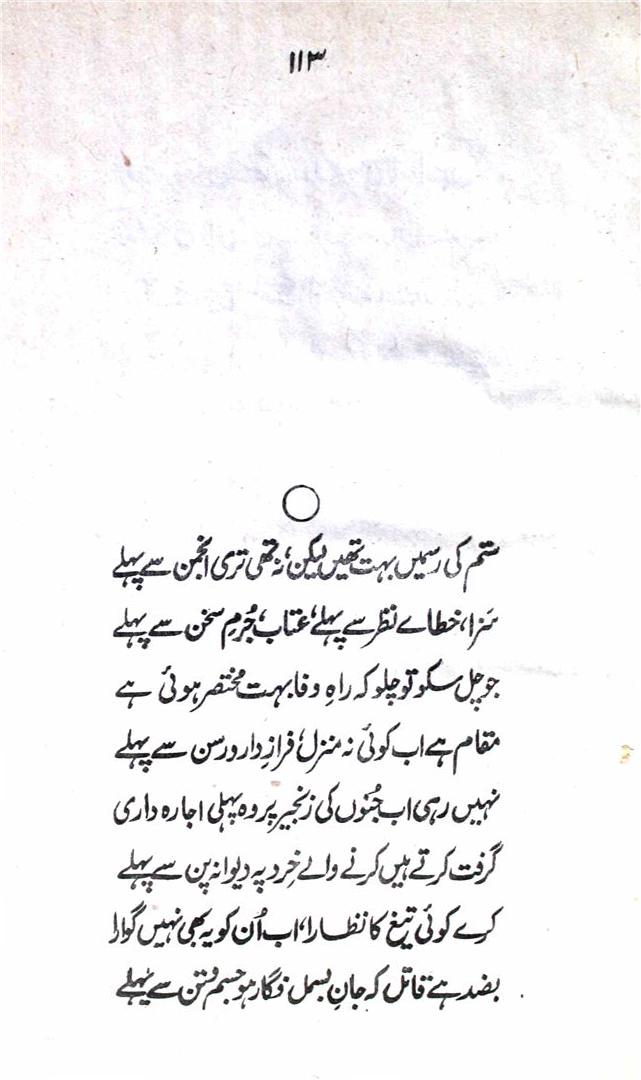 ۱۱۳
ستم کی رسمیں بہت تھیں لیکن، نہ تھی تری انجمن سے پہلے
سزا، خطاے نظر سے پہلے، عتاب، جُرمِ سخن سے پہلے
جو چل سکو تو چلو کہ راہِ وفا بہت مختصر ہوئی ہے
مقام ہے اب کوئی نہ منزل، فرازِ دار و رسن سے پہلے
نہیں رہی اب جُنوں کی زنجیر پر وہ پہلی اجارہ داری
گرفت کرتے ہیں کرنے والے خِرد پہ دیوانہ پن سے پہلے
کرے کوئی تیغ کا نظارا، اب اُن کو یہ بھی نہیں گوارا
بضد ہے قاتل کہ جانِ بسمل فگار ہو جسم و تن سے پہلے